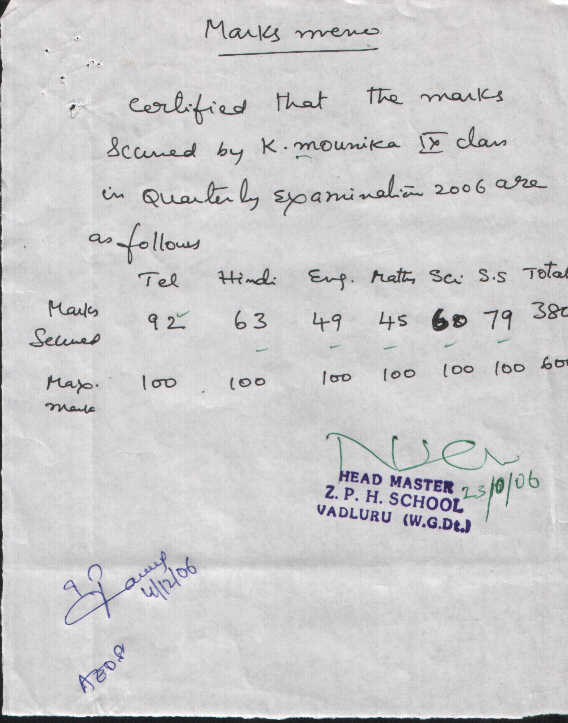 Marks memo
Certified that the marks
Secured by K. mounika IX class
in Quarterly Examination 2006 are
as follows
Tel Hindi Eng. Maths Sci S.S Total
Marks Secured 92 63 49 45 60 79 380
Max. mark 100 100 100 100 100 100 600
HEAD MASTER
Z. P. H. SCHOOL
VADLURU (W.G.Dt.)
4/12/06